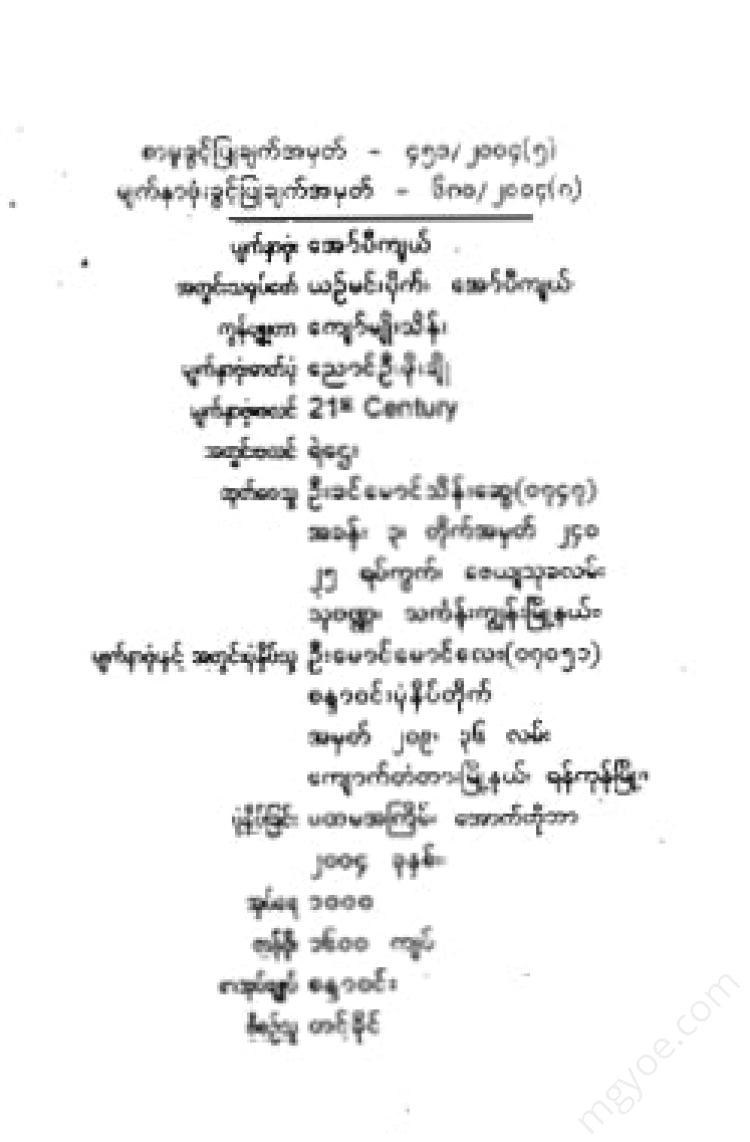 စာမူခွင့်ပြုချက်အမှတ် - ၄၅၁/၂၀၀၄(၅)
မျက်နှာဖုံးခွင့်ပြုချက်အမှတ် - ၆၈၀/၂၀၀၄(၈)
မျက်နှာဖုံး အော်ပီကျယ်
အတွင်းသရုပ်ဖော် ယဉ်မင်းပိုက်၊ အော်ပီကျယ်
ကွန်ပျူတာ ကျော်မျိုးသိန်း
မျက်နှာဖုံးဓာတ်ပုံ ညောင်ဦးဖိုးချို
မျက်နှာဖုံးဖလင် 21st Century
အတွင်းဖလင် ရဲဌေး
ထုတ်ဝေသူ ဦးခင်မောင်သိန်းဆွေ(၀၇၄၇)
အခန်း ၃၊ တိုက်အမှတ် ၂၄၀
၂၅ ရပ်ကွက်၊ ဇေယျသုခလမ်း
သုဝဏ္ဏ၊ သင်္ကန်းကျွန်းမြို့နယ်။
မျက်နှာဖုံးနှင့် အတွင်းပုံနှိပ်သူ ဦးမောင်မောင်လေး(၀၇၀၅၁)
စန္ဒာဝင်းပုံနှိပ်တိုက်
အမှတ် ၂၀၉၊ ၃၆ လမ်း
ကျောက်တံတားမြို့နယ်၊ ရန်ကုန်မြို့။
ပုံနှိပ်ခြင်း ပထမအကြိမ်၊ အောက်တိုဘာ
၂၀၀၄ ခုနှစ်။
အုပ်ရေ ၁၀၀၀
တန်ဖိုး ၁၆၀၀ ကျပ်
စာအုပ်ချုပ် စန္ဒာဝင်း
စီစဉ်သူ တင့်ခိုင်
mgyoe.com